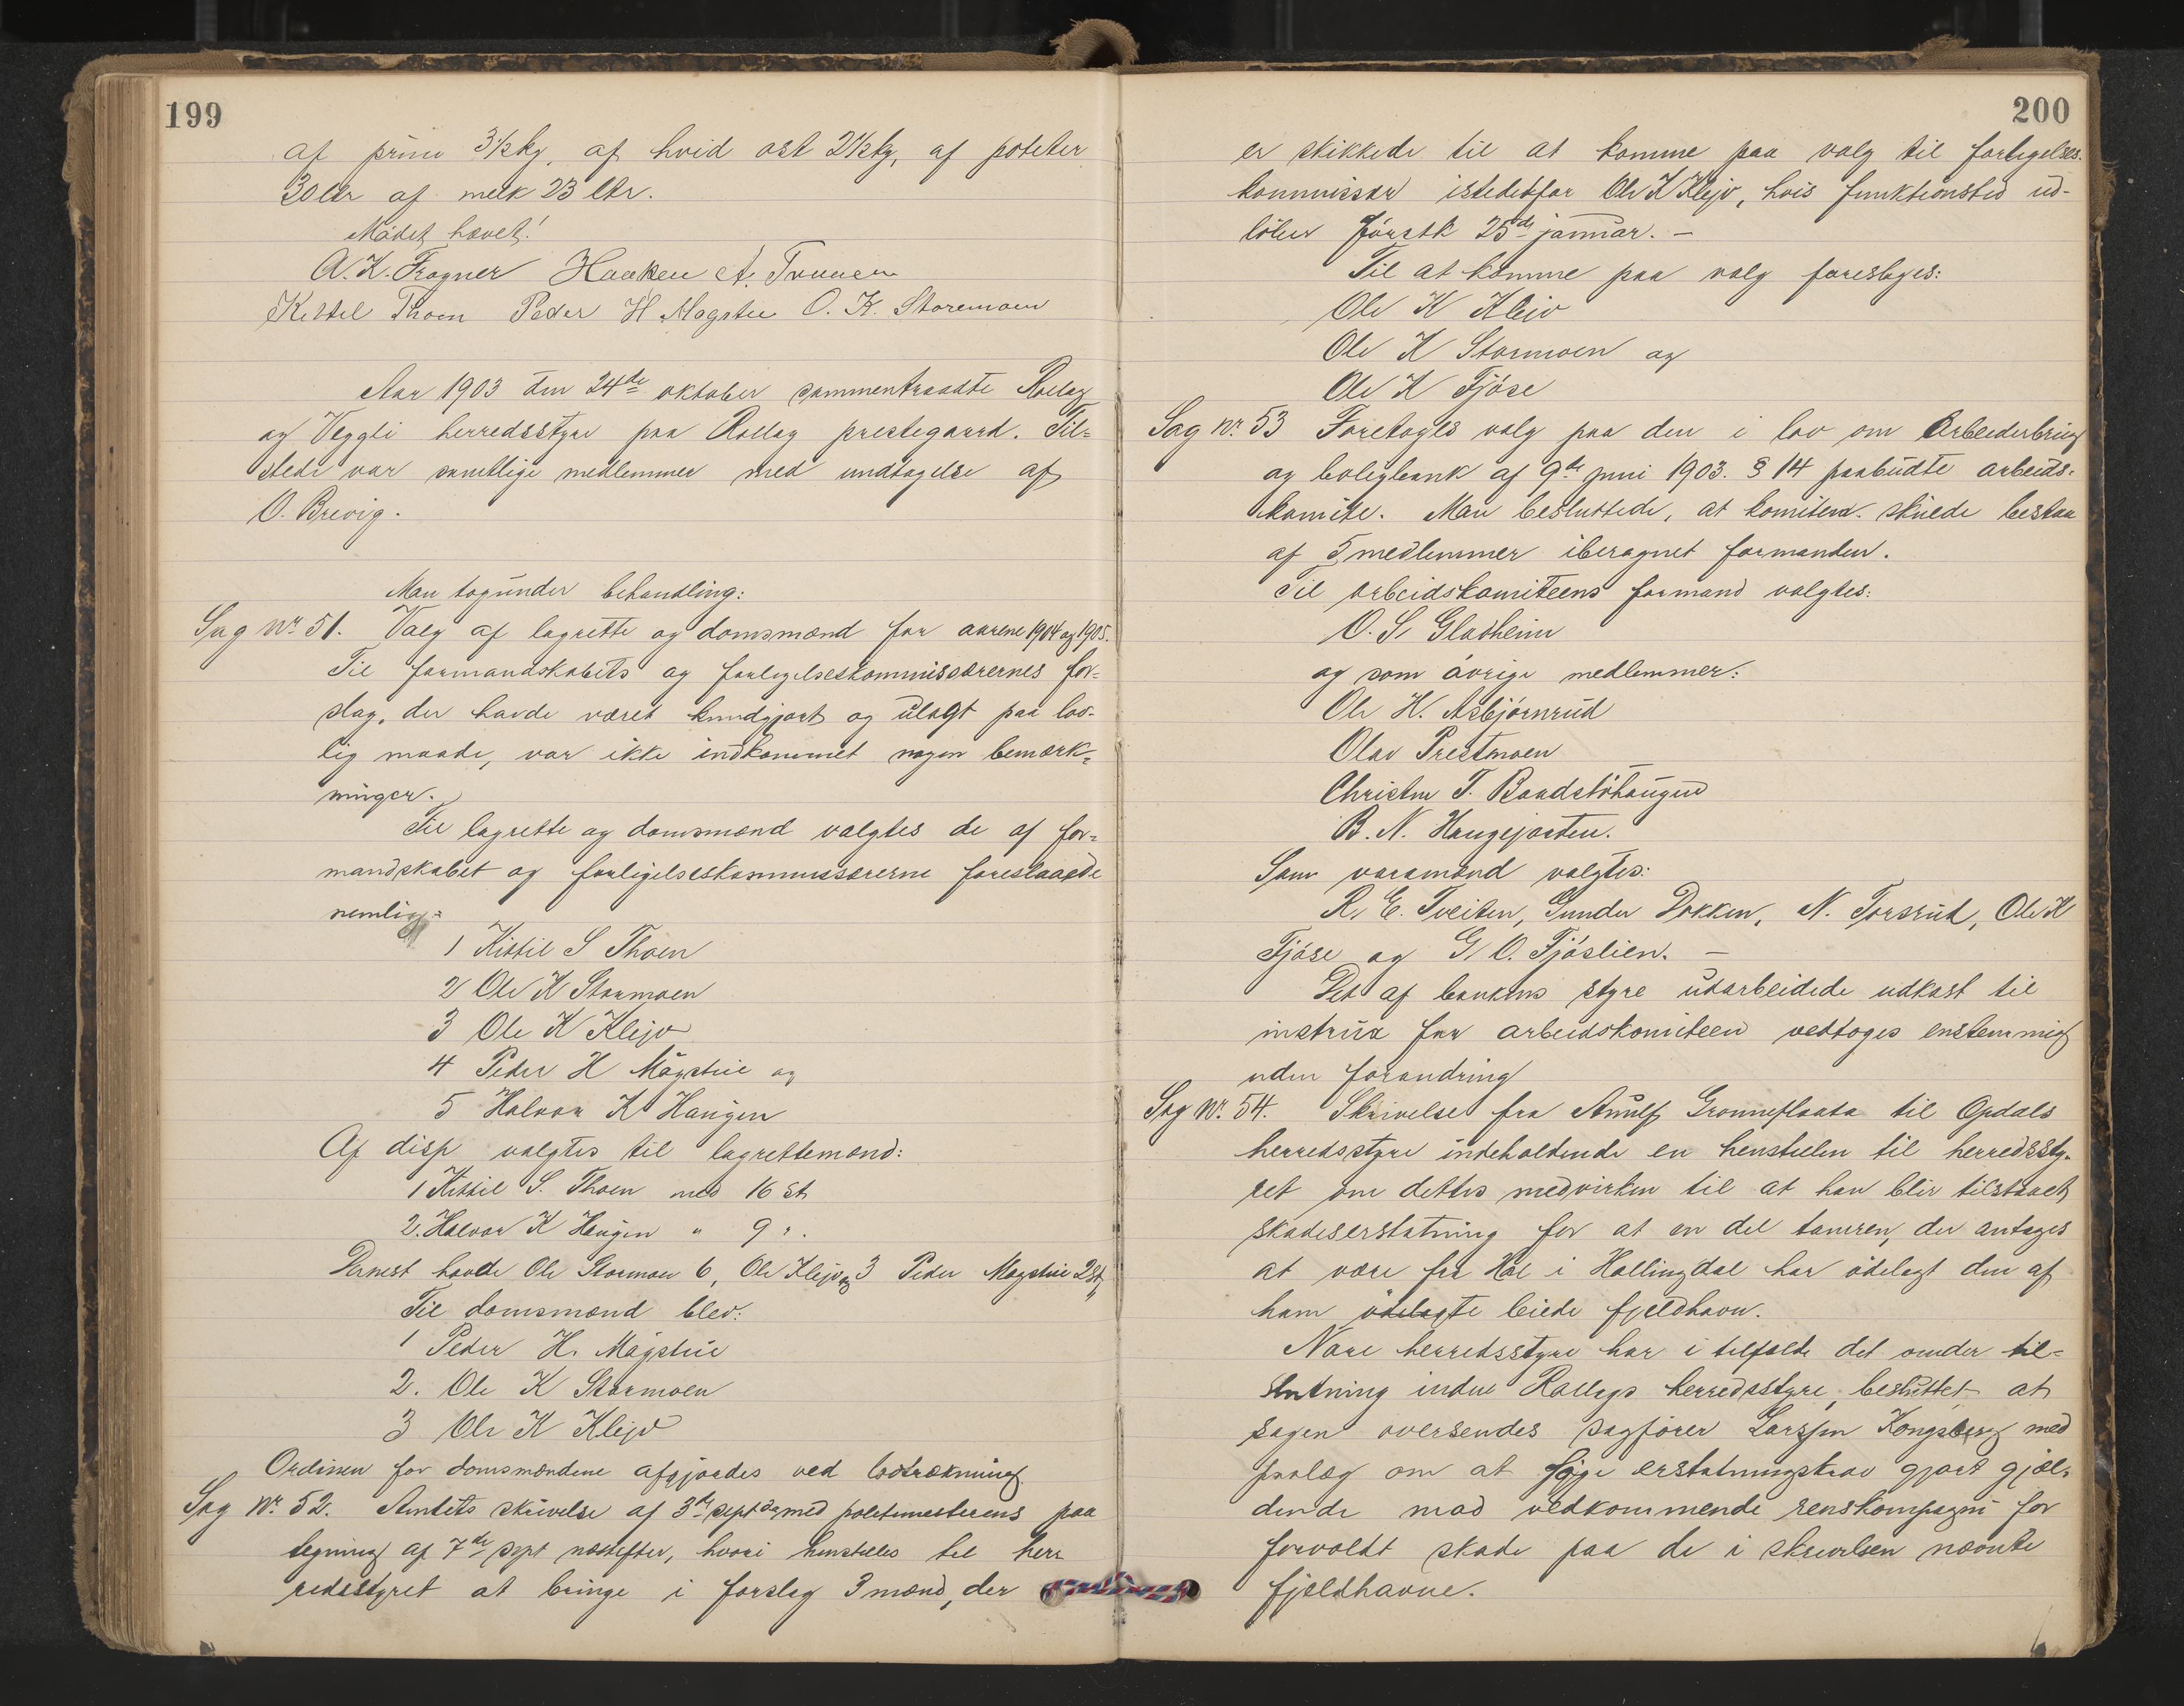 199
af prim 3½kg, af hvid ost 2½kg, af poteter
30 ltr af melk 23 ltr.
Mödet hævet!
A. K. Frogner Haaken A. Traaen
Kittel Thoen Peder H Mogstue O. K. Storemoen
Aar 1903 den 24de oktober sammentraadte Rollag
og Veggli herredsstyre paa Rollag prestegaard. Til-
stede var samtlige medlemmer med undtagelse af
O. Brevig.
Man tog under behandling:
Sag Nr. 51. Valg af lagrette og domsmænd for aarene 1904 og 1905.
Til formandskabets og forligelseskommissærernes for-
slag, der havde været kundgjort og ulagt paa lov-
lig maade, var ikke indkommet nogen bemærk-
ninger.
Til lagrette og domsmænd valgtes de af for-
mandskabet og forligelseskommissærerne foreslaaede
nemlig:
1 Kittil S Thoen
2 Ole K Stormoen
3 Ole K Klejv
4 Peder H Mågstue og
5 Halvor K Haugen
Af disse valgtes til lagrettemænd:
1 Kittil S. Thoen med 16 st
2. Halvor K Haugen " 9 ".
Dernest havde Ole Stormoen 6, Ole Klejv 3 og Peder Mogstue 2 st
Til domsmænd blev:
1 Peder H. Mågstue
2. Ole K Stormoen
3 Ole K Klejv
Ordenen for domsmændene afgjordes ved lodtrækning.
Sag Nr. 52. Amtets skrivelse af 3de sept da med politimesterens paa
tegning af 7de sept næstefter, hvori henstilles til her-
redsstyret at bringe i forslag 3 mænd, der
200
er skikkede til at komme paa valg til forligelses-
kommissær istedetfor Ole K Klejv, hvis funktionstid ud-
löber förstk 25de januar. –
Til at komme paa valg foreslages:
Ole K Klejv
Ole K Stormoen og
Ole K Fjöse
Sag Nr. 53 Foretoges valg paa den i lov om Arbeiderbrug
og boligbank af 9de juni 1903. § 14 paabudte arbeids-
komite. Man besluttede, at komiteen skulde bestaa
af 5 medlemmer iberegnet formanden.
Til arbeidskomiteens formand valgtes:
O. S. Gladheim
og som övrige medlemmer:
Ole H. Asbjörnrud
Olav Prestmoen
Christen T. Baadstöhaugen
B. N. Haugejorden.
Som varamænd valgtes:
R. E. Tveiten, Gunder Dokken, N. Torsrud, Ole K
Fjöse og G. O. Fjöslien. –
Det af bankens styre udarbeidede udkast til
instrux for arbeidskomiteen vedtoges enstemmig
uden forandring
Sag Nr. 54. Skrivelse fra Anulf Grønneflaata til Opdals
herredsstyre indeholdende en henstillen til herredssty-
ret om dettes medvirken til at han blir tilstaaet
skadeserstatning for at en del tamren, der antages
at være fra Hol i Hallingdal har ödelagt den af
ham ödelagte leiede fjeldhavn.
Nore herredsstyre har i tilfælde det vinder til-
slutning inden Rollags herredsstyre, besluttet at
sagen oversendes sagförer Larssen Kongsberg med
paalæg om at söge erstatningskrav gjort gjæl-
dende mod vedkommende renskompagni for
forvoldt skade paa de i skrivelsen nævnte
fjeldhavne.